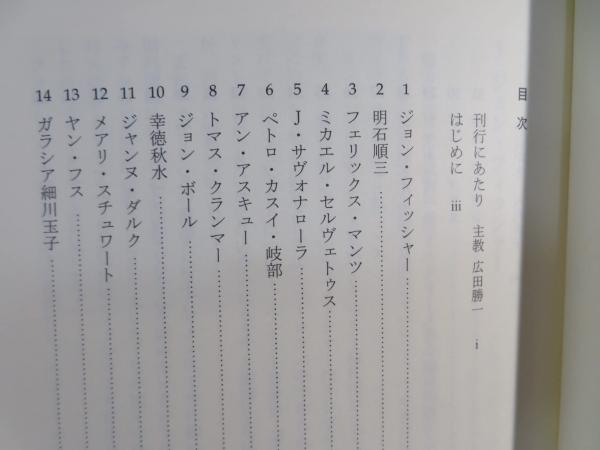 目次
刊行にあたり 主教 広田勝一 i
はじめに iii
1 ジョン・フィッシャー
2 明石順三
3 フェリックス・マンツ
4 ミカエル・セルヴェトゥス
5 J・サヴォナローラ
6 ペトロ・カスイ・岐部
7 アン・アスキュー
8 トマス・クランマー
9 ジョン・ボール
10 幸徳秋水
11 ジャンヌ・ダルク
12 メアリ・スチュワート
13 ヤン・フス
14 ガラシア細川玉子